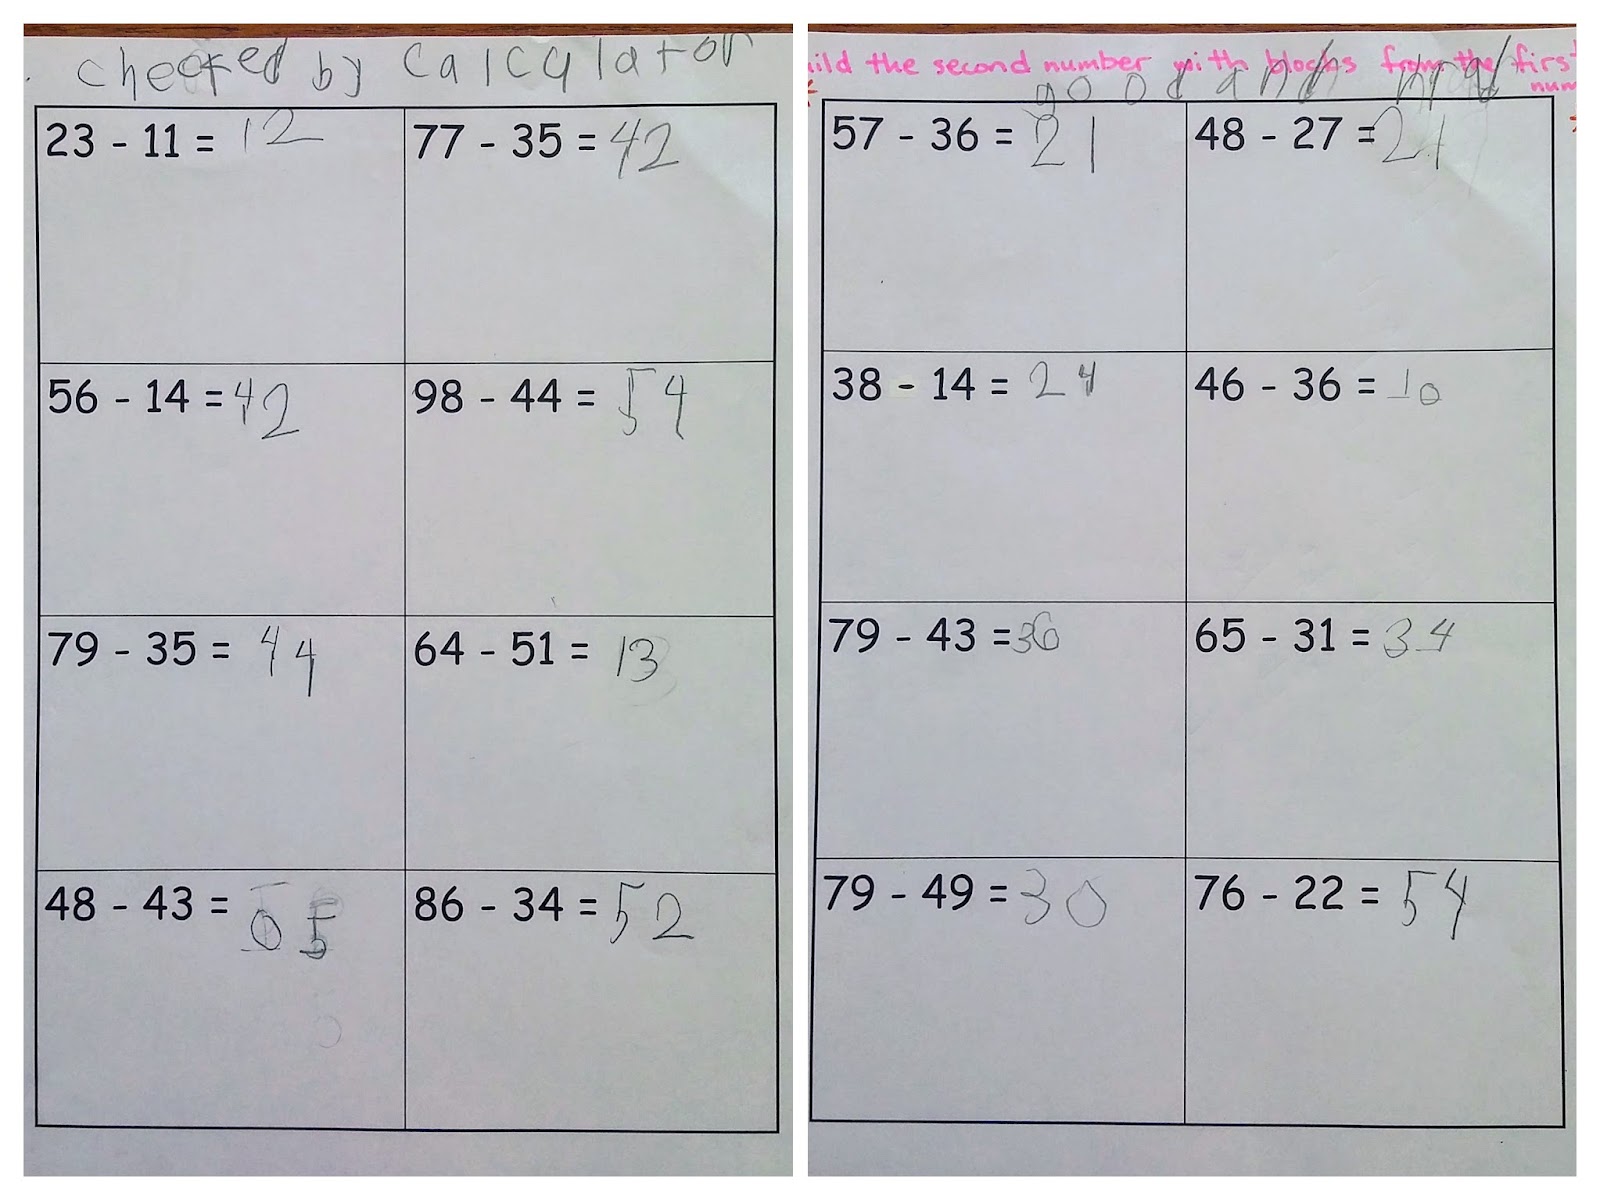 checked by calculator
23 - 11 = 12 77 - 35 = 42
56 - 14 = 42 98 - 44 = 54
79 - 35 = 44 64 - 51 = 13
48 - 43 = 05 86 - 34 = 52
ild the second number with blocks from the first
good and num
57 - 36 = 21 48 - 27 = 21
38 - 14 = 24 46 - 36 = 10
79 - 43 = 36 65 - 31 = 34
79 - 49 = 30 76 - 22 = 54